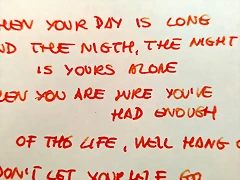 HEN YOUR DAY IS LONG
ND THE NIGTH, THE NIGHT
IS YOURS ALONE
HEN YOU ARE SURE YOU'VE
HAD ENOUGH
OF THIS LIFE, WELL HANG O
DON'T LET YOURSELF GO